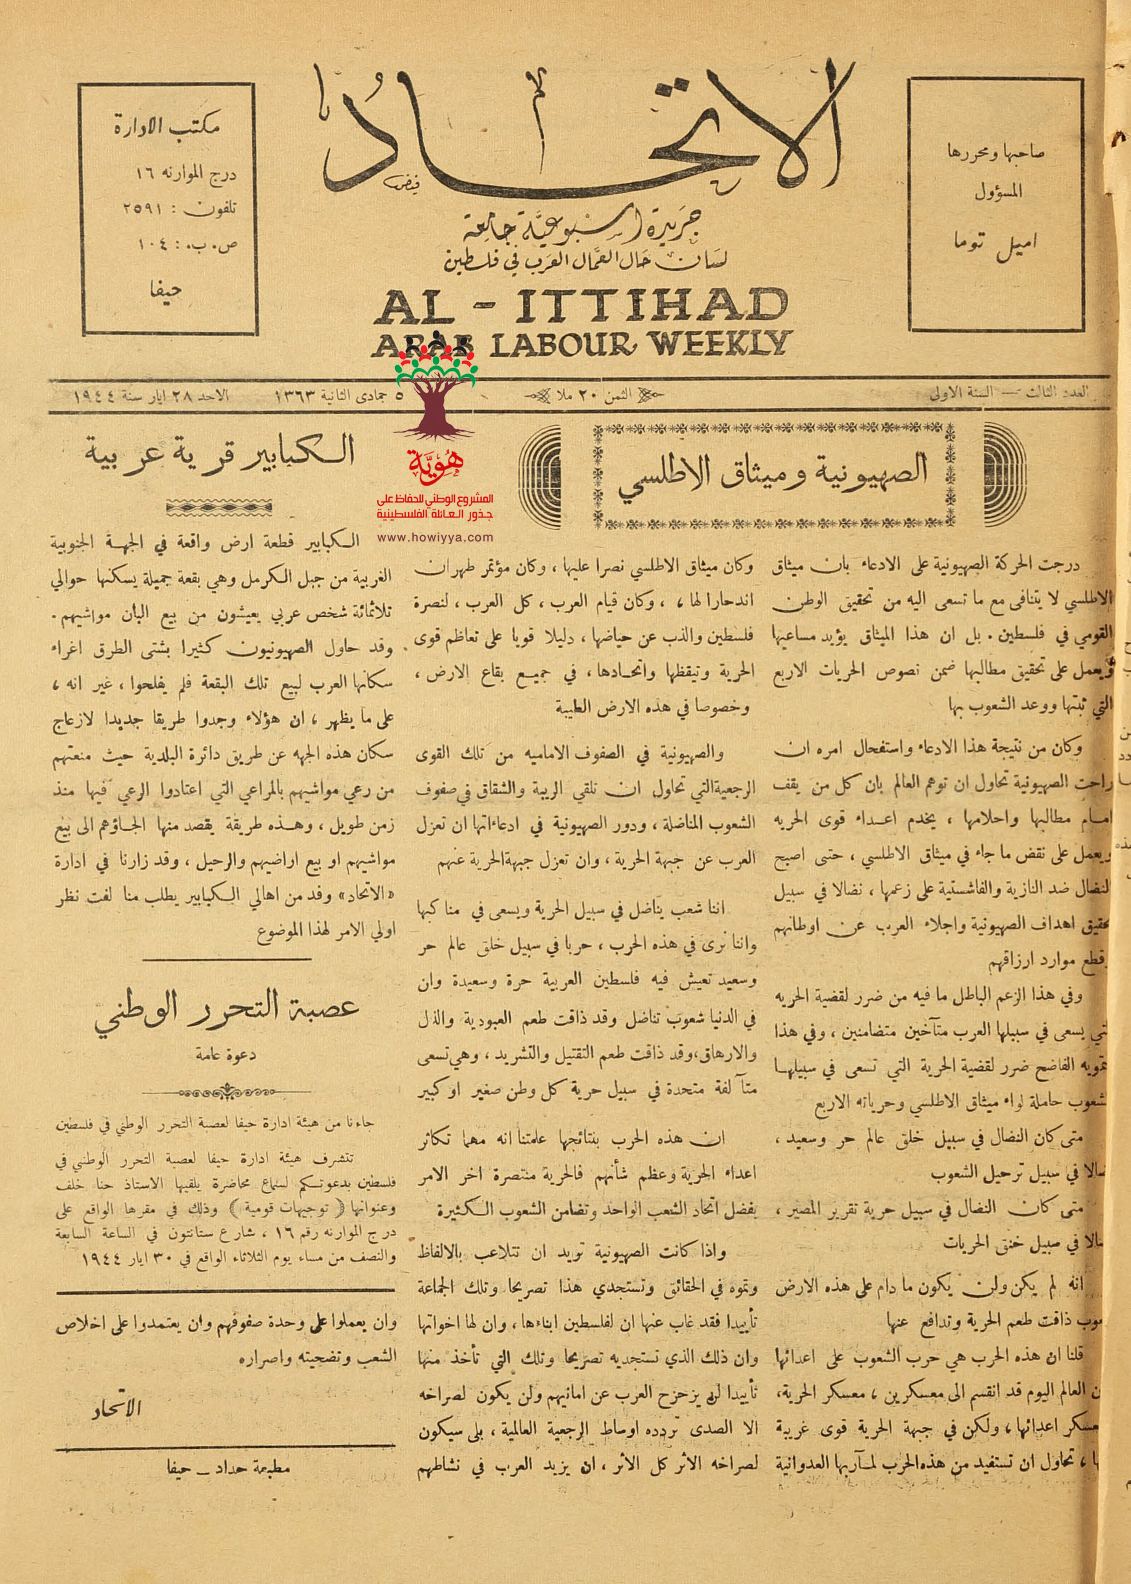 صاحبها ومحررها
المسؤول
اميل توما
الاتحاد
جريدة اسبوعية جامعة
لسان حال العمال العرب في فلسطين
AL - ITTIHAD
ARAB LABOUR WEEKLY
مكتب الادارة
درج الموارنه ١٦
تلفون : ٢٥٩١
ص. ب. : ١٠٤
حيفا
العدد الثالث — السنة الاولى
الثمن ٢٠ ملا
٥ جمادى الثانية ١٣٦٣
الاحد ٢٨ ايار سنة ١٩٤٤
هُويَّة
المشروع الوطني للحفاظ على
جذور العائلة الفلسطينية
www.howiyya.com
الصهيونية وميثاق الاطلسي
درجت الحركة الصهيونية على الادعاء بان ميثاق
الاطلسي لا يتنافى مع ما تسعى اليه من تحقيق الوطن
القومي في فلسطين . بل ان هذا الميثاق يؤيد مساعيها
ويعمل على تحقيق مطالبها ضمن نصوص الحريات الاربع
التي ثبتها ووعد الشعوب بها
وكان من نتيجة هذا الادعاء واستفحال امره ان
راحت الصهيونية تحاول ان توهم العالم بان كل من يقف
امام مطالبها واحلامها ، يخدم اعداء قوى الحريه
ويعمل على نقض ما جاء في ميثاق الاطلسي ، حتى اصبح
النضال ضد النازية والفاشستية على زعمها ، نضالا في سبيل
تحقيق اهداف الصهيونية واجلاء العرب عن اوطانهم
وقطع موارد ارزاقهم
وفي هذا الزعم الباطل ما فيه من ضرر لقضية الحريه
التي يسعى في سبيلها العرب متآخين متضامنين ، وفي هذا
التمويه الفاضح ضرر لقضية الحرية التي تسعى في سبيلها
الشعوب حاملة لواء ميثاق الاطلسي وحرياته الاربع
متى كان النضال في سبيل خلق عالم حر وسعيد ،
نضالا في سبيل ترحيل الشعوب
متى كان النضال في سبيل حرية تقرير المصير ،
نضالا في سبيل خنق الحريات
انه لم يكن ولن يكون ما دام على هذه الارض
شعوب ذاقت طعم الحرية وتدافع عنها
قلنا ان هذه الحرب هي حرب الشعوب على اعدائها
العالم اليوم قد انقسم الى معسكرين ، معسكر الحرية،
ومعسكر اعدائها ، ولكن في جبهة الحرية قوى غريبة
، تحاول ان تستفيد من هذه الحرب لمآربها العدوانية
وكان ميثاق الاطلسي نصرا عليها ، وكان مؤتمر طهران
اندحارا لها ، ، وكان قيام العرب ، كل العرب ، لنصرة
فلسطين والذب عن حياضها ، دليلا قويا على تعاظم قوى
الحرية وتيقظها واتحادها ، في جميع بقاع الارض ،
وخصوصا في هذه الارض الطيبة
والصهيونية في الصفوف الاماميه من تلك القوى
الرجعية التي تحاول ان تلقي الريبة والشقاق في صفوف
الشعوب المناضلة ، ودور الصهيونية في ادعاءاتها ان تعزل
العرب عن جبهة الحرية ، وان تعزل جبهة الحرية عنهم
اننا شعب يناضل في سبيل الحرية ويسعى في مناكبها
واننا نرى في هذه الحرب ، حربا في سبيل خلق عالم حر
وسعيد تعيش فيه فلسطين العربية حرة وسعيدة وان
في الدنيا شعوب تناضل وقد ذاقت طعم العبودية والذل
والارهاق، وقد ذاقت طعم التقتيل والتشريد ، وهي تسعى
متآلفة متحدة في سبيل حرية كل وطن صغير او كبير
ان هذه الحرب بنتائجها علمتنا انه مهما تكاثر
اعداء الحرية وعظم شأنهم فالحرية منتصرة اخر الامر
بفضل اتحاد الشعب الواحد وتضامن الشعوب الكثيرة
واذا كانت الصهيونية تريد ان تتلاعب بالالفاظ
وتموه في الحقائق وتستجدي هذا تصريحا وتلك الجماعة
تأييدا فقد غاب عنها ان لفلسطين ابناءها ، وان لها اخواتها
وان ذلك الذي تستجديه تصريحا وتلك التي تأخذ منها
تأييدا لن يزحزح العرب عن امانيهم ولن يكون لصراخه
الا الصدى تردده اوساط الرجعية العالمية ، بلى سيكون
لصراخه الاثر كل الاثر ، ان يزيد العرب في نشاطهم
الكبابير قرية عربية
الكبابير قطعة ارض واقعة في الجهة الجنوبية
الغربية من جبل الكرمل وهي بقعة جميلة يسكنها حوالي
ثلاثمائة شخص عربي يعيشون من بيع البان مواشيهم .
وقد حاول الصهيونيون كثيرا بشتى الطرق اغراء
سكانها العرب لبيع تلك البقعة فلم يفلحوا ، غير انه ،
على ما يظهر ، ان هؤلاء وجدوا طريقا جديدا لازعاج
سكان هذه الجهه عن طريق دائرة البلدية حيث منعتهم
من رعي مواشيهم بالمراعي التي اعتادوا الرعي فيها منذ
زمن طويل ، وهذه طريقة يقصد منها الجاؤهم الى بيع
مواشيهم او بيع اراضيهم والرحيل ، وقد زارنا في ادارة
«الاتحاد» وفد من اهالي الكبابير يطلب منا لفت نظر
اولي الامر لهذا الموضوع
عصبة التحرر الوطني
دعوة عامة
جاءنا من هيئة ادارة حيفا لعصبة التحرر الوطني في فلسطين
تتشرف هيئة ادارة حيفا لعصبة التحرر الوطني في
فلسطين بدعوتكم لسماع محاضرة يلقيها الاستاذ حنا خلف
وعنوانها ( توجيهات قومية ) وذلك في مقرها الواقع على
درج الموارنه رقم ١٦ ، شارع ستانتون في الساعة السابعة
والنصف من مساء يوم الثلاثاء الواقع في ٣٠ ايار ١٩٤٤
وان يعملوا على وحدة صفوفهم وان يعتمدوا على اخلاص
الشعب وتضحيته واصراره
الاتحاد
مطبعة حداد ـ حيفا